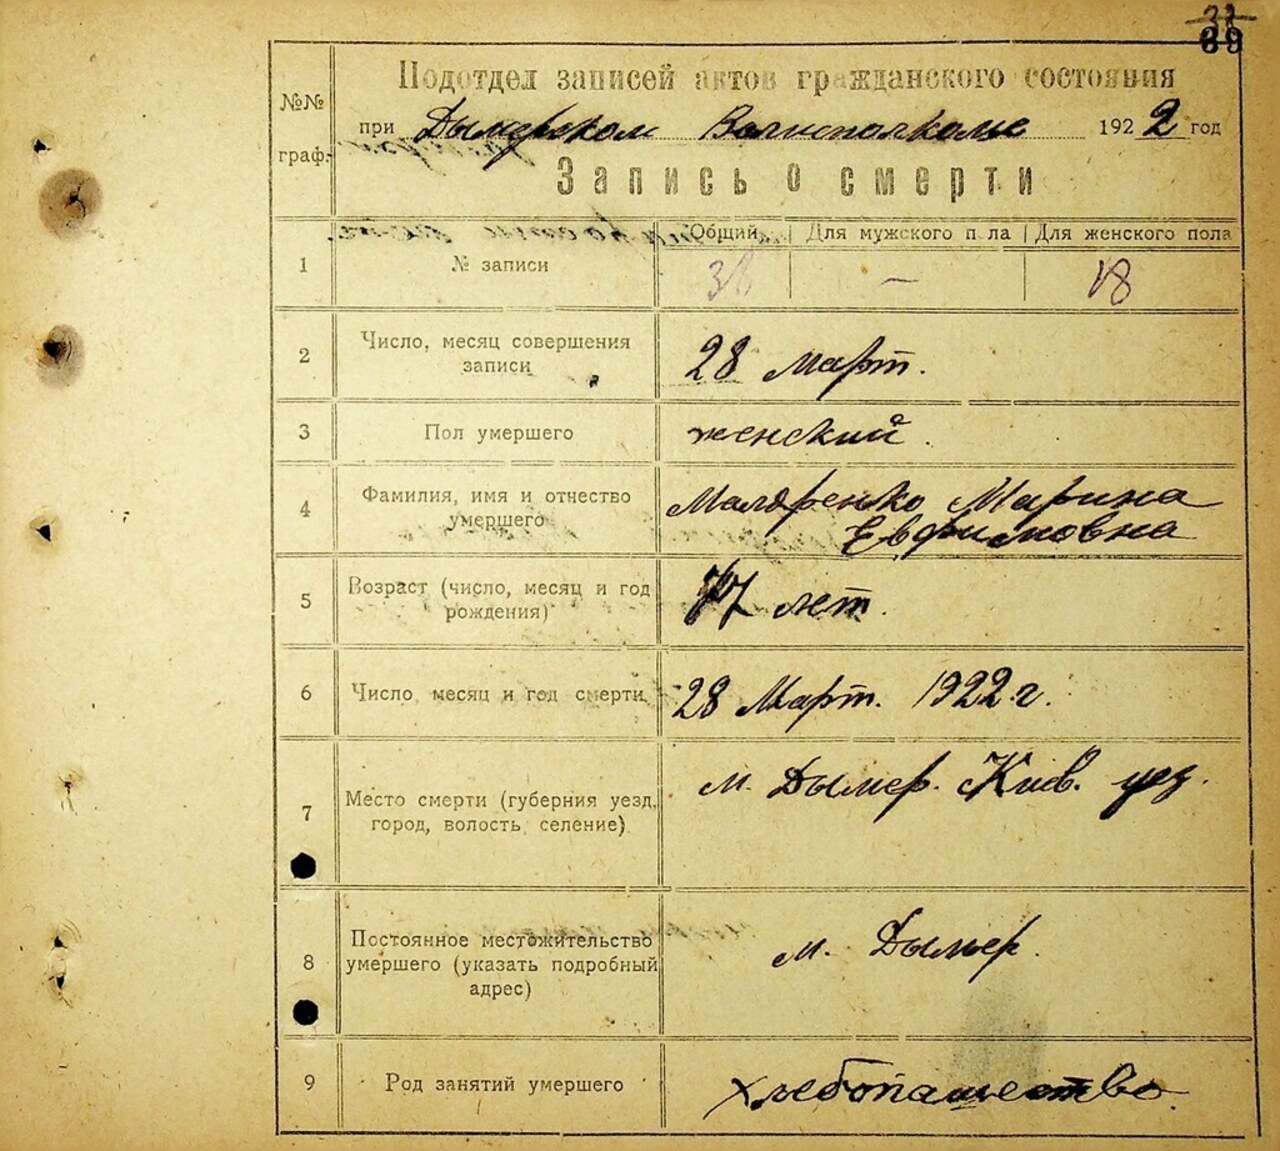 39
69
Подотдел записей актов гражданского состояния
№№ граф.
при Дымерском Волисполкоме 1922 год
Запись о смерти
Общий Для мужского пола Для женского пола
1 № записи 38 — 18
2 Число, месяц совершения записи
28 Март.
3 Пол умершего женский.
4 Фамилия, имя и отчество умершего
Маляренко Марина
Евфимовна
5 Возраст (число, месяц и год рождения)
77 лет.
6 Число, месяц и год смерти 28 Март. 1922.г.
7 Место смерти (губерния уезд, город, волость, селение)
м. Дымер. Киев. уез.
8 Постоянное местожительство умершего (указать подробный адрес)
м. Дымер.
9 Род занятий умершего хлебопашество.